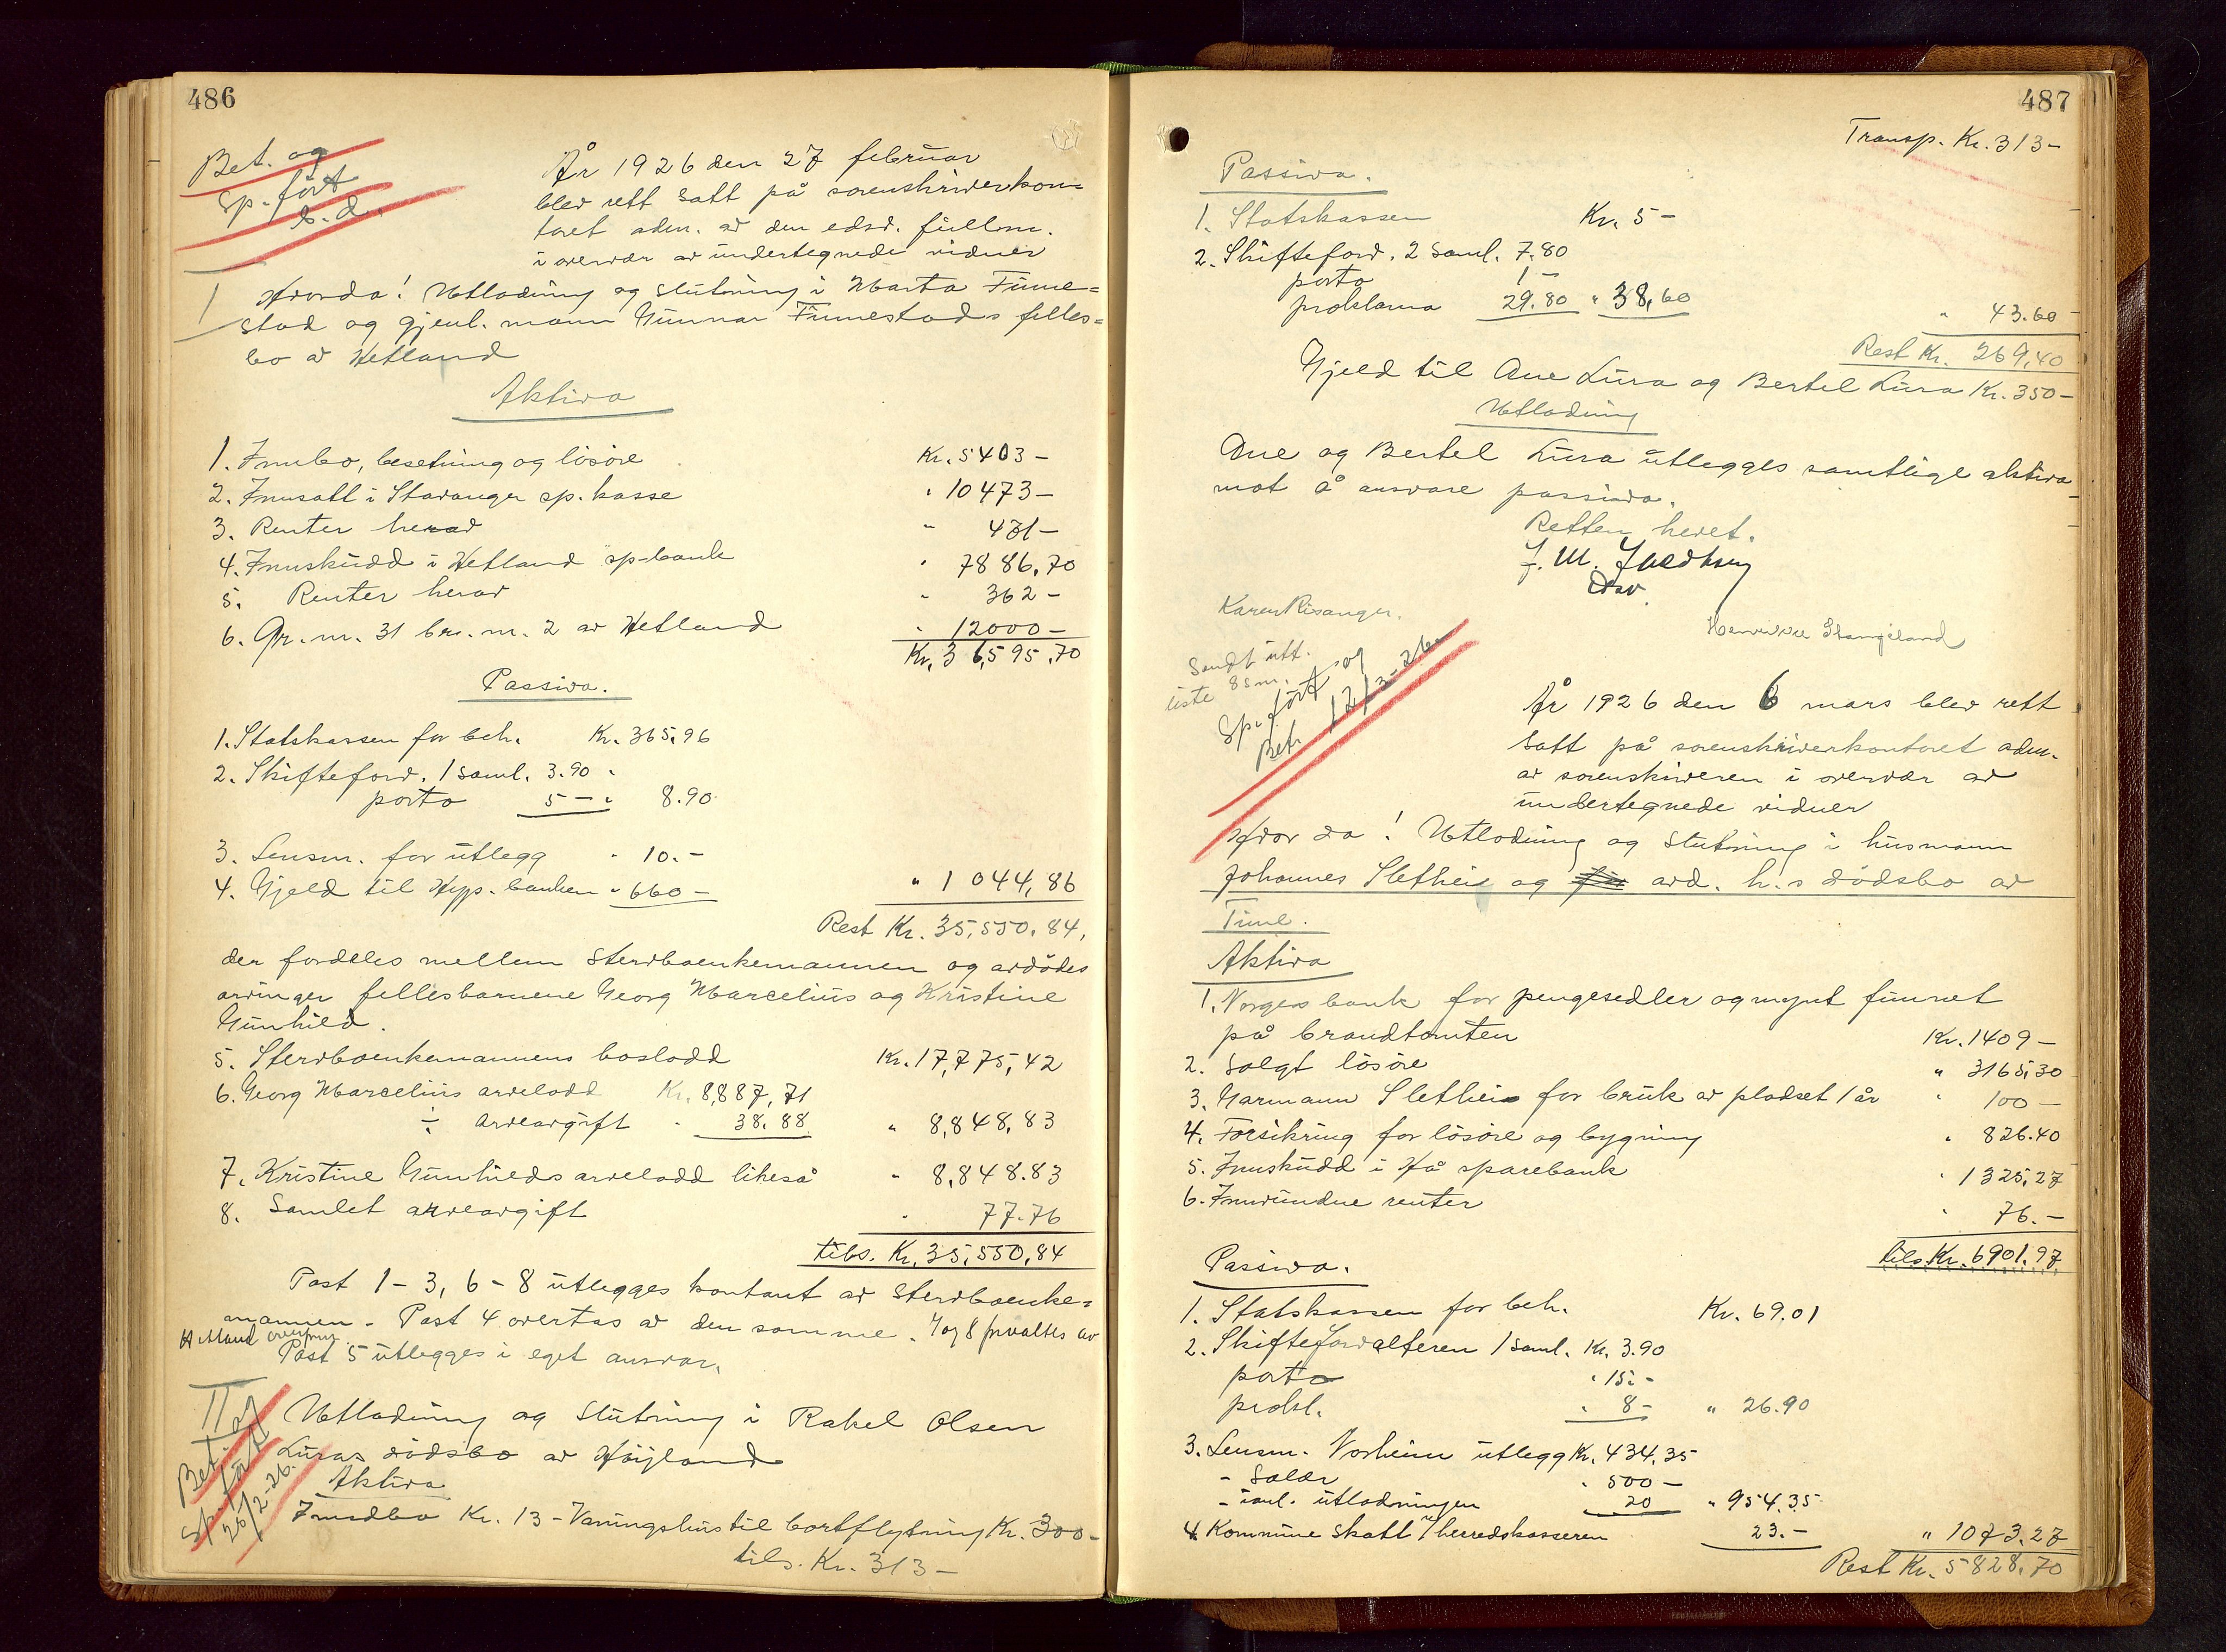 486
Bet. og
sp. ført
s. d.
År 1926 den 27 februar
blev rett satt på sorenskriverkon=
toret adm. av den edsv. fullm.
i overvær av undertegnede vidner
I Hvorda! Utlodning og slutning i Marta Finne=
stad og gjenl. mann Gunnar Finnestads felles=
bo av Hetland
Aktiva
1. Innbo, besetning og løsøre Kr. 5403 -
2. Innsatt i Stavanger sp. kasse " 10473 -
3. Renter herav " 471 -
4. Innskudd i Hetland sp-bank " 7886,70
5. Renter herav " 362 -
6. Gr. nr. 31 br. nr. 2 av Hetland " 12000 -
Kr. 36,595,70
Passiva.
1. Statskassen for beh. Kr. 365,96
2. Skifteford. 1 saml. 3.90 "
porto 5 - " 8.90
3. Lensm. for utlegg " 10.-
4. Gjeld til Hyp. banken " 660 - " 1044,86
Rest Kr. 35,550,84,
der fordeles mellem stervboenkemannen og avdødes
arvinger fellesbarnene Georg Marcelius og Kristine
Gunhild.
5. Stervboenkemannens boslodd Kr. 17,775,42
6. Georg Marcelius arvelodd Kr. 8,887,71
÷ arveavgift " 38.88 " 8,848,83
7. Kristine Gunhilds arvelodd likeså " 8,848.83
8. Samlet arveavgift " 77.76
tils. Kr. 35,550,84
Post 1-3, 6-8 utlegges kontant av stervboenke=
mannen. Post 4 overtas av den samme. 7 og 8 forvaltes av
Hetland overform.
Post 5 utlegges i eget ansvar.
II Utlodning og slutning i Rakel Olsen
Luras dødsbo av Høyland
Bet. og
sp. ført
26/2-26.
Aktiva
Innbo Kr. 13 - Vaningshus til bortflytning Kr. 300 -
tils. Kr. 313 -
487
Transp. Kr. 313 -
Passiva.
1. Statskassen Kr. 5 -
2. Skifteford. 2 saml. 7.80
porto 1 -
proklama 29.80 " 38,60
" 43.60
Rest Kr. 269,40
Gjeld til Ane Lura og Bertel Lura Kr. 350 -
Utlodning
Ane og Bertel Lura utlegges samtlige aktiva
mot å ansvare passiva.
Retten hevet.
Edsv.
Karen Risanger.
Henrikke Stangeland
Sendt utt.
liste 8 sm.
Sp. ført og
Bet. 12/3-26
År 1926 den 6 mars blev rett
satt på sorenskriverkontoret adm.
av sorenskriveren i overvær av
undertegnede vidner
Hvor da! Utlodning og slutning i husmann
Johannes Sletheis og avd. h.s dødsbo av
Time.
Aktiva
1. Norges bank for pengesedler og mynt funnet
på brandtomten Kr. 1409 -
2. Solgt løsøre " 3165,30
3. Garmann Slethei for bruk av pladset 1 år " 100 -
4. Forsikring for løsøre og bygning " 826.40
5. Innskudd i Hå sparebank " 1325,27
6. Innvundne renter " 76.-
tils Kr. 6901,97
Passiva.
1. Statskassen for beh. Kr. 69.01
2. Skifteforvalteren 1 saml. Kr. 3.90
porto " 15 -
prokl. " 8 - " 26.90
3. Lensm. Norheim utlegg Kr. 434,35
- Salær " 500 -
- innl. utlodningen " 20 " 954,35
4. Kommune skatt v/herredskasseren 23.- " 1073,27
Rest Kr. 5828,70